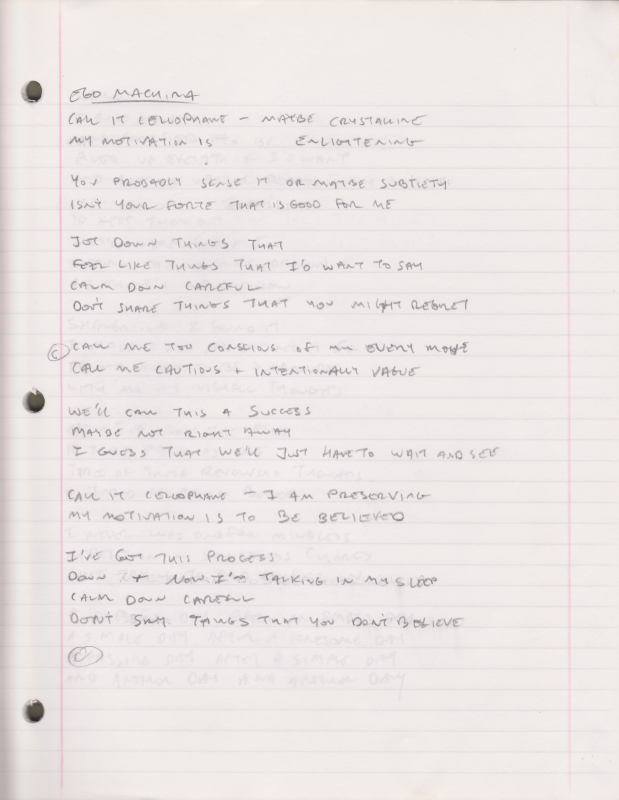 EGO MACHINA
CALL IT CELLOPHANE - MAYBE CRYSTALLINE
MY MOTIVATION IS ENLIGHTENING
YOU PROBABLY SENSE IT OR MAYBE SUBTLETY
ISN'T YOUR FORTE THAT IS GOOD FOR ME
JOT DOWN THINGS THAT
FEEL LIKE THINGS THAT I'D WANT TO SAY
CALM DOWN CAREFUL
DON'T SHARE THINGS THAT YOU MIGHT REGRET
(C) CALL ME TOO CONSCIOUS OF MY EVERY MOVE
CALL ME CAUTIOUS + INTENTIONALLY VAGUE
WE'LL CALL THIS A SUCCESS
MAYBE NOT RIGHT AWAY
I GUESS THAT WE'LL JUST HAVE TO WAIT AND SEE
CALL IT CELLOPHANE - I AM PRESERVING
MY MOTIVATION IS TO BE BELIEVED
I'VE GOT THIS PROCESS
DOWN + NOW I'M TALKING IN MY SLEEP
CALM DOWN CAREFUL
DON'T SAY THINGS THAT YOU DON'T BELIEVE
(C)
A SIMPLE DAY AFTER A AWESOME DAY
DAY AFTER A SIMPLE DAY
AND ANOTHER DAY AND ANOTHER DAY